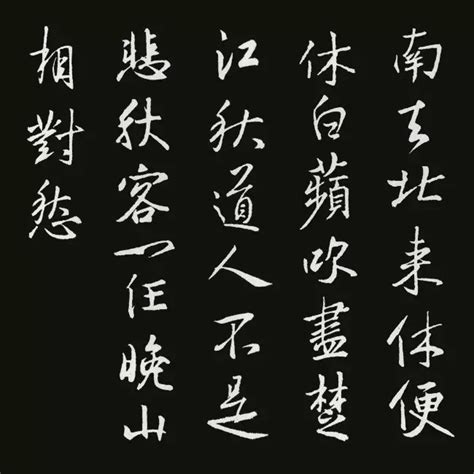 南去北来休便
休白蘋吹盡楚
江秋道人不是
悲秋客一任晚山
相對愁